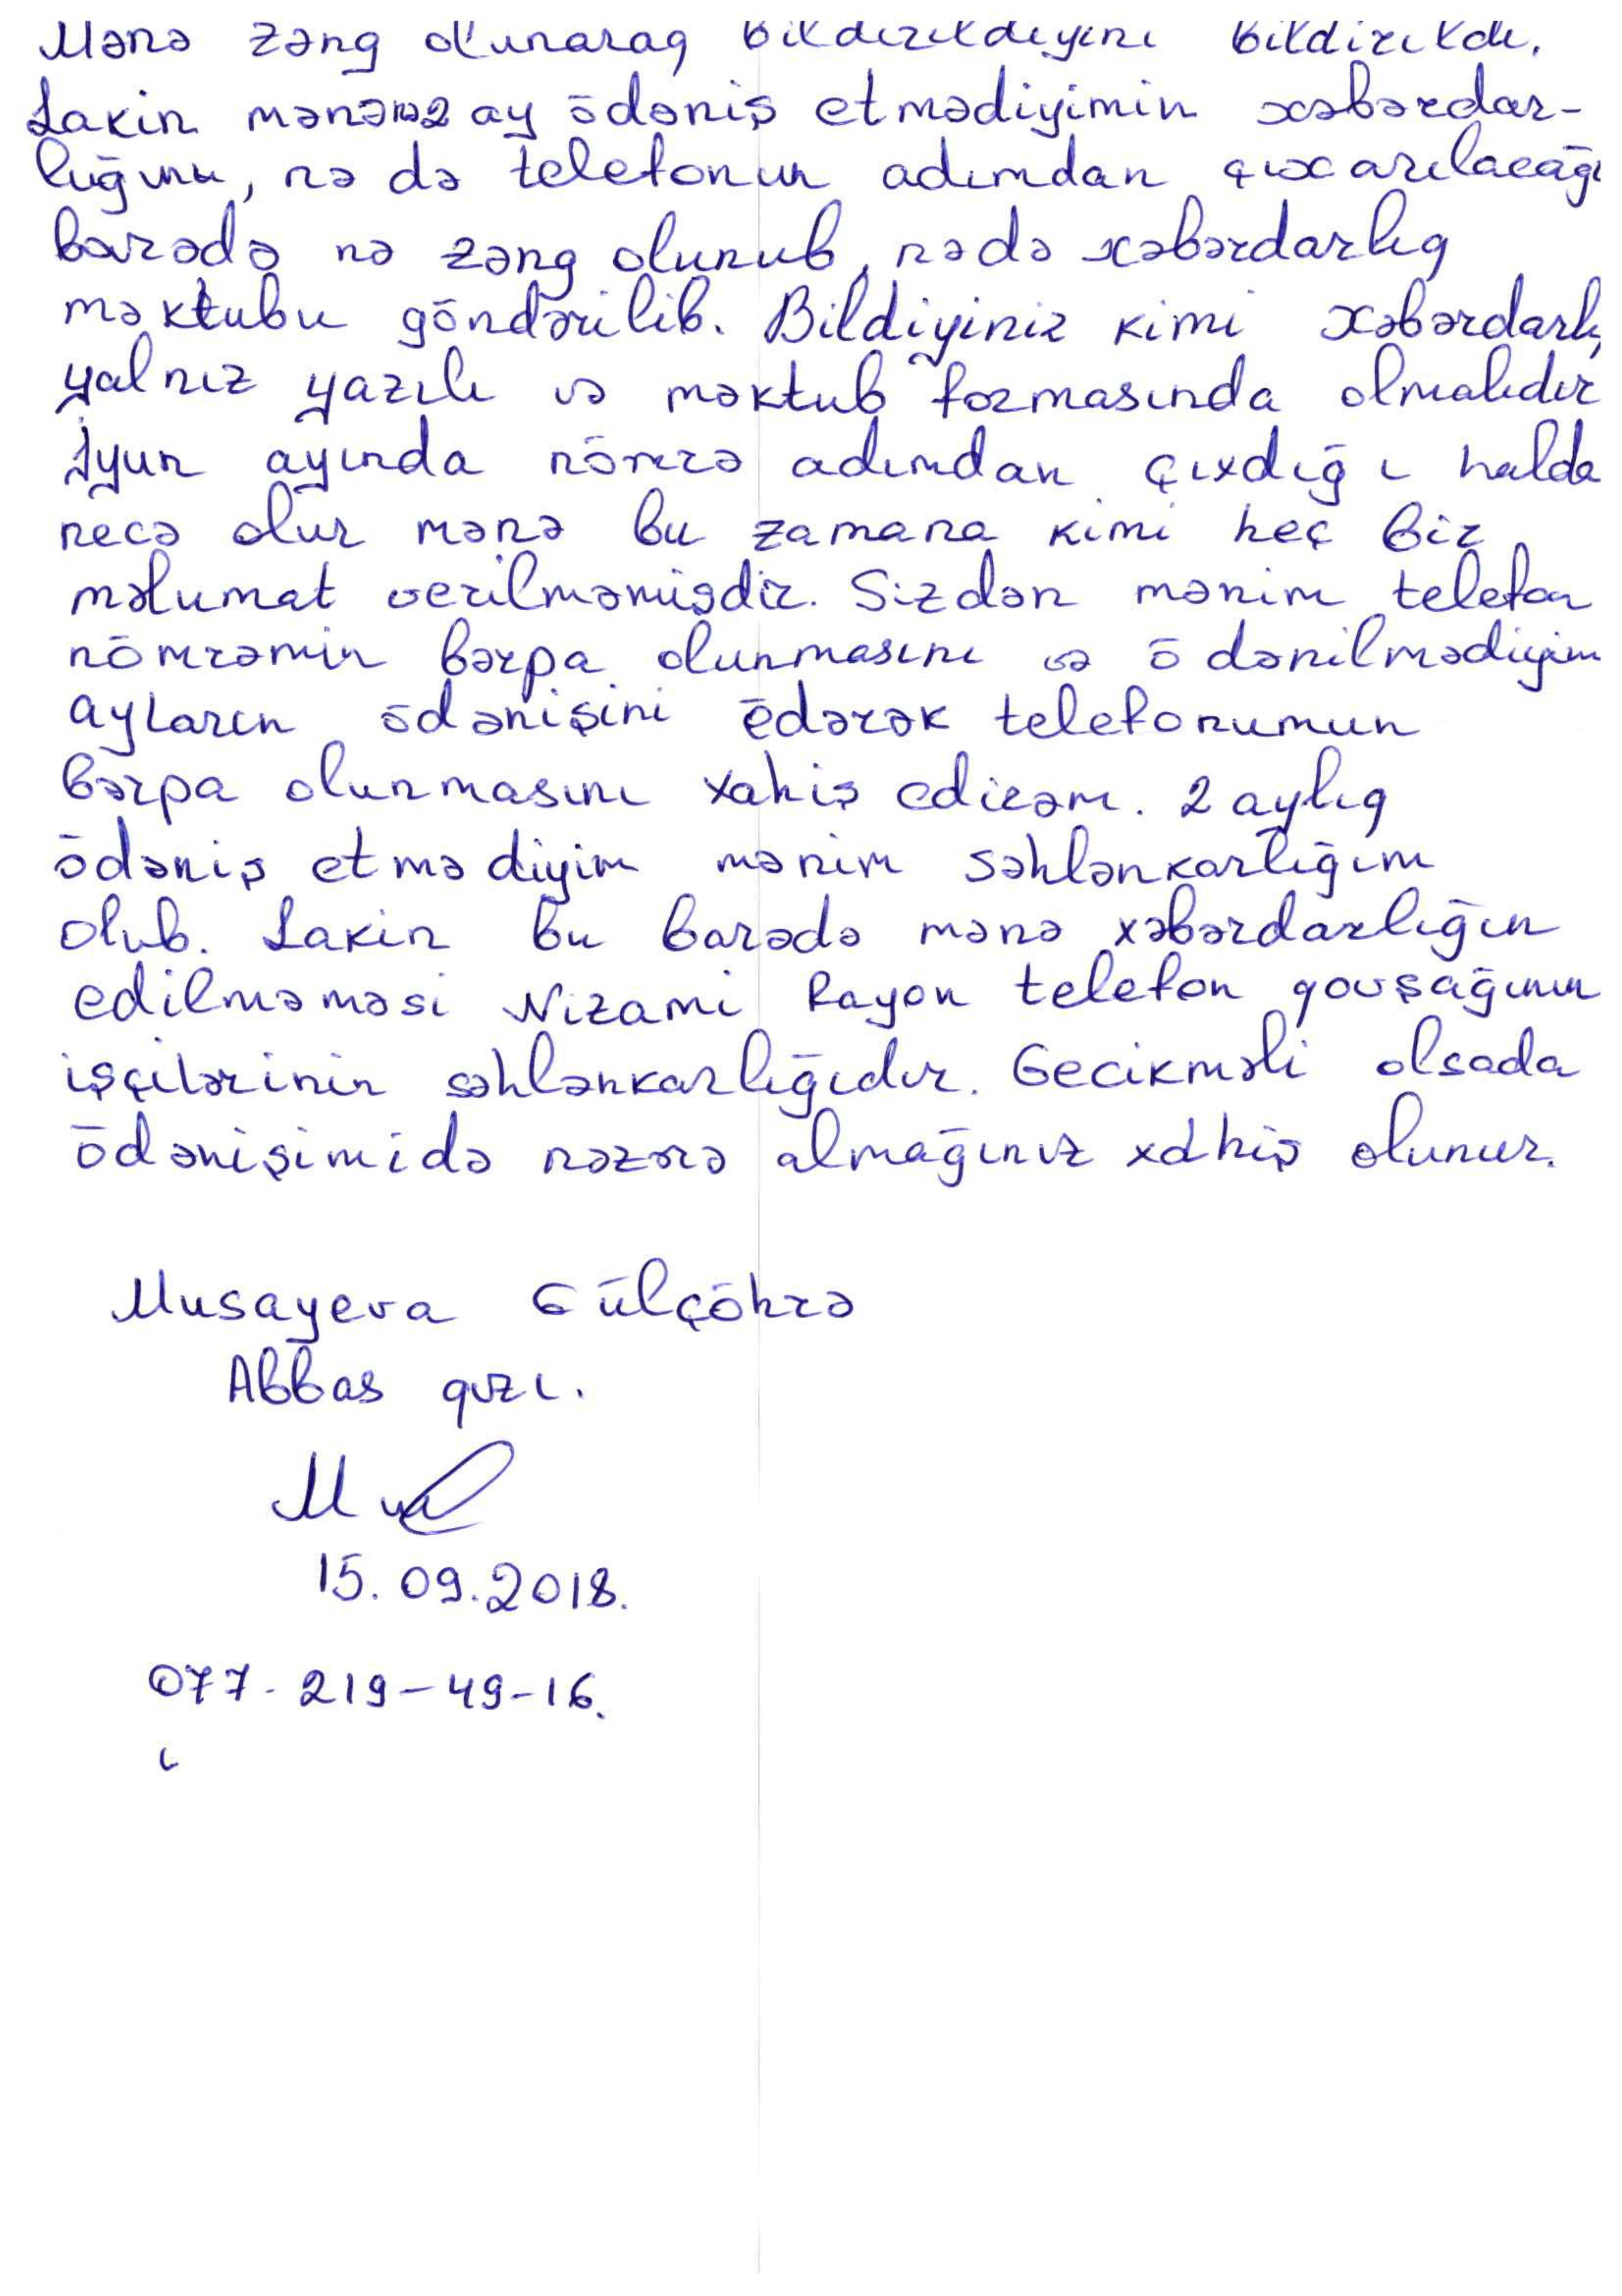 Mənə zəng olunaraq bildirildiyini bildirildi.
Lakin mənə nə 2 ay ödəniş etmədiyimin xəbərdar-
lığını, nə də telefonun adımdan çıxarılacağı
barədə nə zəng olunub, nədə xəbərdarlıg
məktubu göndərilib. Bildiyiniz kimi xəbərdarlı
yalnız yazılı və məktub formasında olmalıdır
İyun ayında nömrə adımdan çıxdığı halda
necə olur mənə bu zamana kimi heç bir
məlumat verilməmişdir. Sizdən mənim telefon
nömrəmin bərpa olunmasını və ödənilmədiyim
ayların ödənişini ödərək telefonumun
bərpa olunmasını xahiş edirəm. 2 aylıq
ödəniş etmədiyim mənim səhlənkarlığım
olub. Lakin bu barədə mənə xəbərdarlığın
edilməməsi Nizami Rayon telefon qovşağının
işçilərinin səhlənkarlığıdır. Gecikməli olsada
ödənişimidə nəzərə almağınız xahiş olunur.
Musayeva Gülçöhrə
Abbas qızı.
15.09.2018.
077-219-49-16.